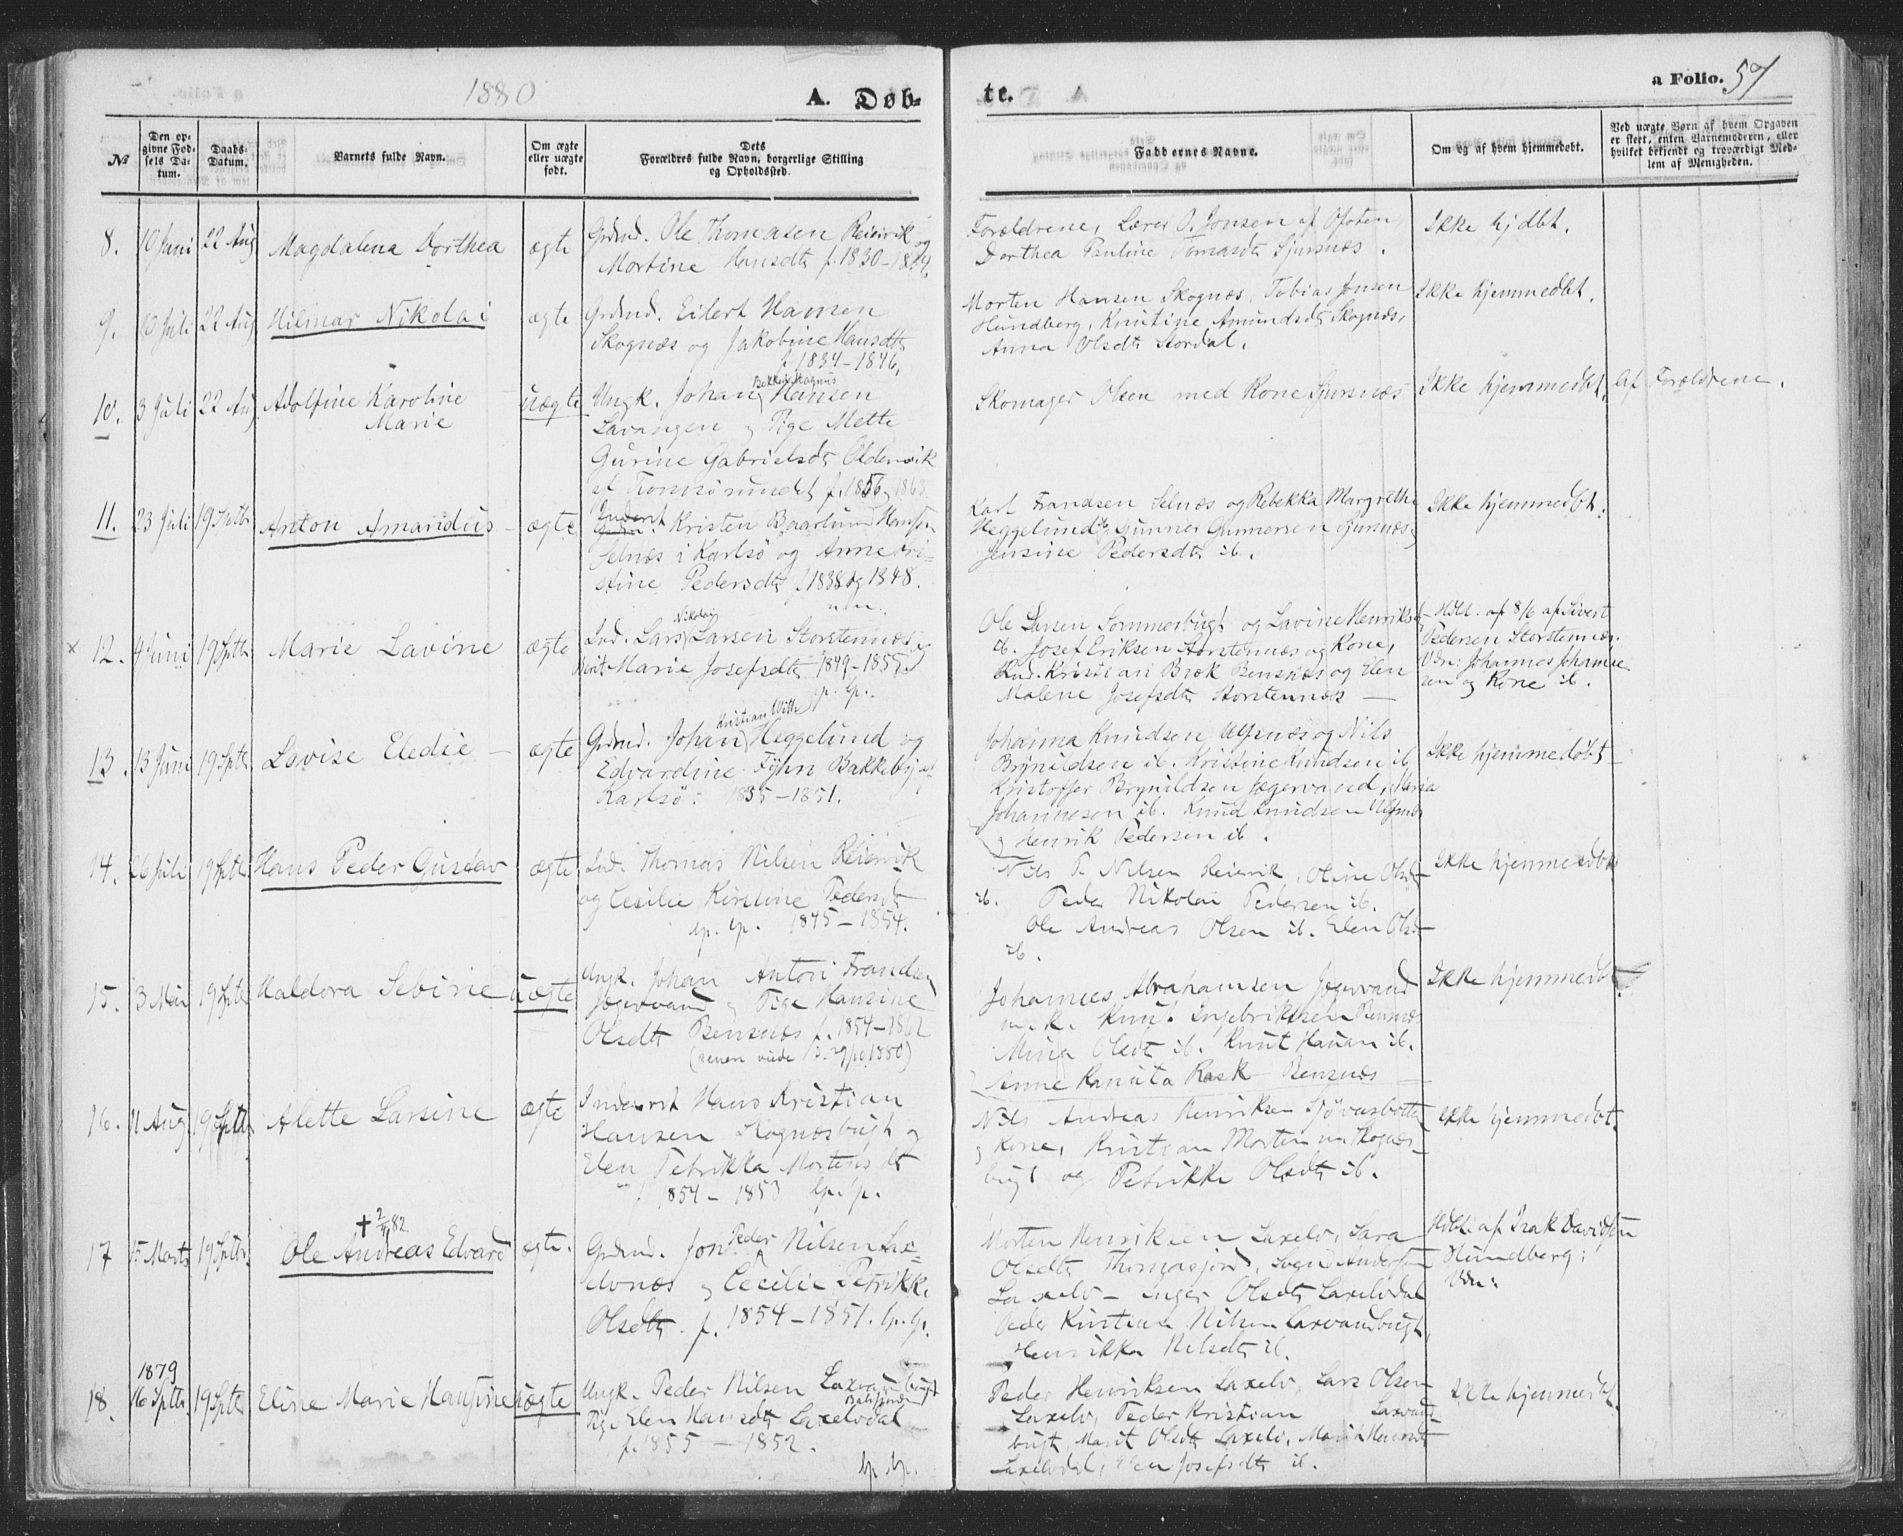 1880
A. Døb-
te.
a Folio. 57
№
Den op-
givne Fød-
sels Da-
tum.
Daabs-
Datum.
Barnets fulde Navn.
Om ægte
eller uægte
født.
Dets
Forældres fulde Navn, borgerlige Stilling
og Opholdssted.
Faddernes Navne.
Om og af hvem hjemmedøbt.
Ved uægte Børn af hvem Opgaven
er skeet, enten Barnemoderen, eller
hvilket bekjendt og troværdigt Med-
lem af Menigheden.
8. 10 Juni 22 Aug Magdalena Dorthea ægte
Grdmd. Ole Thomasen Reiervik og
Martine Hansdtr f. 1830-1834.
Forældrene, Lærer O. Jonsen af Ofoten
Dorthea Pauline Tomasdtr Sjursnæs.
Ikke hjdbt.
9. 10 Juli 22 Aug Hilmar Nikolai ægte
Grdmd. Eilert Hansen
Skognæs og Jakobine Hansdtr
f. 1834-1846.
Morten Hansen Skognæs, Tobias Jonsen
Hundberg, Knutine Amundsdtr Skognæs,
Anna Olsdtr Stordal.
Ikke hjemmedbt.
10. 3 Juli 22 Aug. Adolfine Karoline
Marie
uægte
Ungk. Johan Hansen
Lavangen og Pige Mette
Gurine Gabrielsdtr Oldervik
af Tromsøsundet f. 1856, 1863
Skomager Olsen med Kone Sjursnæs
Ikke hjemmedbt.
Af Forældrene.
11. 23 Juli 19 Sptbr Anton Amandus ægte
Inderst Kristen Baarlund Hansen
Selnæs i Karlsø og Anne Kri-
stine Pedersdtr f. 1838 og 1848.
Karl Frandsen Selnæs og Rebekka Margrethe
Heggelund ib, Gunner Gunnersen Sjursnæs,
Jensine Pedersdtr ib.
Ikke hjemmedbt.
× 12. 4 Juni 19 Sptbr Marie Lavine ægte
Nikolai
Ind. Lars Larsen Storstennæs og
Berit Marie Josefsdtr 1849-1855.
lp. lp.
Ole Larsen Sommerbugt og Lavine Henriksdtr
ib. Josef Eriksen Storstennæs og Kone,
Ind. Kristian Bræk Bensnæs og Elen
Malene Josefsdtr Storstennæs
Hdbt. af 8/6 af Sivert
Pedersen Storstennæs.
Vdn: Johannes Johanne-
sen og Kone ib.
13. 13 Juni 19 Sptbr Lovise Eledie ægte
Kristian With
Grdmd. Johan Heggelund og
Edvardine Fyhn Bakkeby af
Karlsø: 1835-1851.
Johanna Knudsen Ulfsnæs og Nils
Brynildsen ib. Kristine Knudsen ib,
Kristoffer Brynildsen Jægervand, Maria
Johannesen ib. Knud Knudsen Ulfsnæs
og Henrik Pedersen ib.
Ikke hjemmedøbt
14. 26 Juli 19 Sptbr Hans Peder Gustav ægte
Ind. Thomas Nilsen Reiervik
og Cecilie Kirstine Pedersdtr
lp. lp. 1845-1854.
Nils T. Nilsen Reiervik, Oline Olsdtr
ib. Peder Nikolai Pedersen ib.
Ole Andreas Olsen ib. Elen Olsdtr
ib.
Ikke hjemmedbt
15. 3 Mai 19 Sptbr Haldora Sebine uægte
Ungk. Johan Anton Frandsen
Jægervand og Pige Hansine
Olsdtr Bensnæs f. 1854-1862
Johannes Abrahamsen Jægervand
m. k. Knut Ingebriktsen Bensnæs
Mina Olsdt ib. Knut Hansen ib.
Anne Kanuta Rask Bensnæs
Ikke hjemmedbt
16. 11 Aug 19 Sptbr Alette Larsine ægte
Inderst Hans Kristian
Hansen Skognæsbugt og
Elen Petrikka Mortensdtr
f. 1854-1853 lp. lp.
Nils Andreas Henriksen Sjøvasbotten
og Kone, Kristian Morten Skognæs-
bugt og Petrikke Olsdtr ib.
Ikke hjemmedbt.
† 2/4 82
17 15 Marts 19 Sptbr. Ole Andreas Edvard ægte.
Peder
Grdmd. Jon Nilsen Lax-
elvnæs og Cecilie Petrikke
Olsdtr. f. 1854-1851. lp. lp.
Morten Henriksen Laxelv, Sara
Olsdtr Thomasjord, Andersen
Laxelv - Inger Olsdtr Laxelvdal
Peder Kristian Nilsen Laxvandbugt,
Henrikka Nilsdtr ib.
Hdbt. af Isak Davidsen
Hundberg:
Vdn:
1879
18. 16 Sptbr. 19 Sptbr Eline Marie Hansine uægte
Ungk. Peder Nilsen Laxvandbugt
Balsfjord
Pige Elen Hansdtr Laxelvdal
f. 1855 - 1852.
lp. lp.
Peder Henriksen Laxelv, Lars Olsen
Laxelv, Peder Kristian Laxvand-
bugt, Marit Olsdtr Laxelv, Marit Hansdtr
Laxelvdal, Elen Josefsdtr ib.
Ikke hjemmedbt.